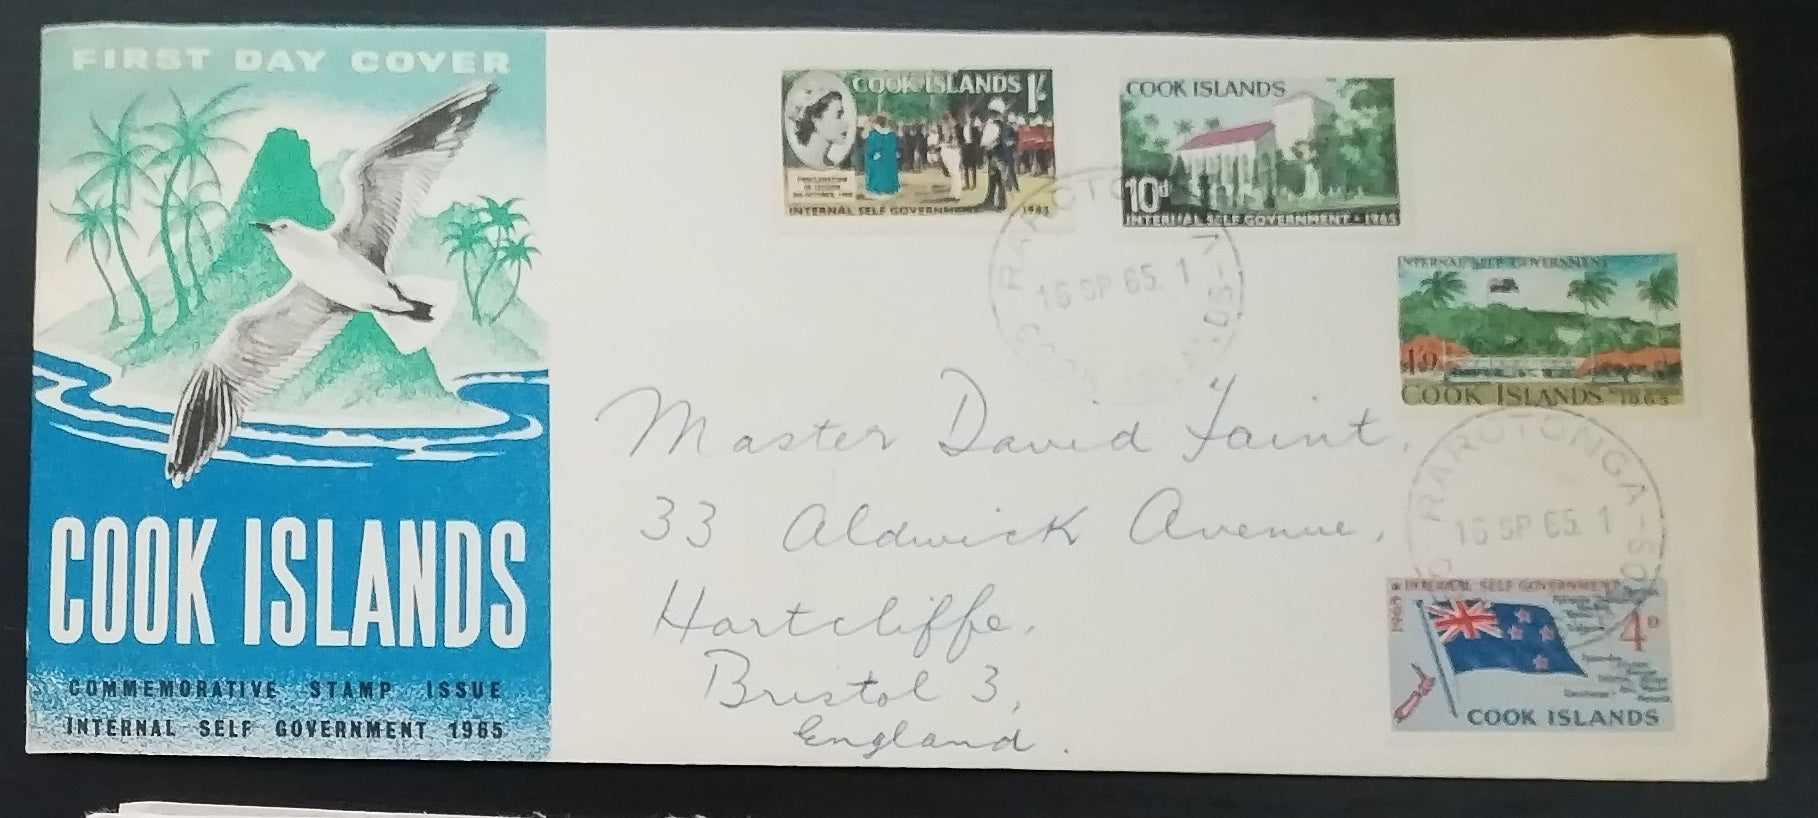 FIRST DAY COVER
COOK ISLANDS
COMMEMORATIVE STAMP ISSUE
INTERNAL SELF GOVERNMENT 1965
COOK ISLANDS 1/-
PROCLAMATION
OF CESSION
INTERNAL SELF GOVERNMENT 1965
COOK ISLANDS
10d
INTERNAL SELF GOVERNMENT • 1965
RAROTONGA
16 SP 65. 1
COOK ISLANDS
INTERNAL SELF GOVERNMENT
1/9
COOK ISLANDS 1965
RAROTONGA
16 SP 65. 1
INTERNAL SELF GOVERNMENT
1965
4d
COOK ISLANDS
Master David Faint,
33 Aldwick Avenue,
Hartcliffe,
Bristol 3,
England.